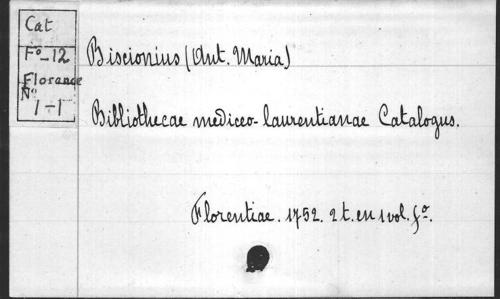 Cat
Fº-12
Florence
Nº
1-1
Biscionius (Ant. Maria)
Bibliothecae mediceo-laurentianae Catalogus.
Florentiae. 1752. 2 t. en 1 vol. fº.